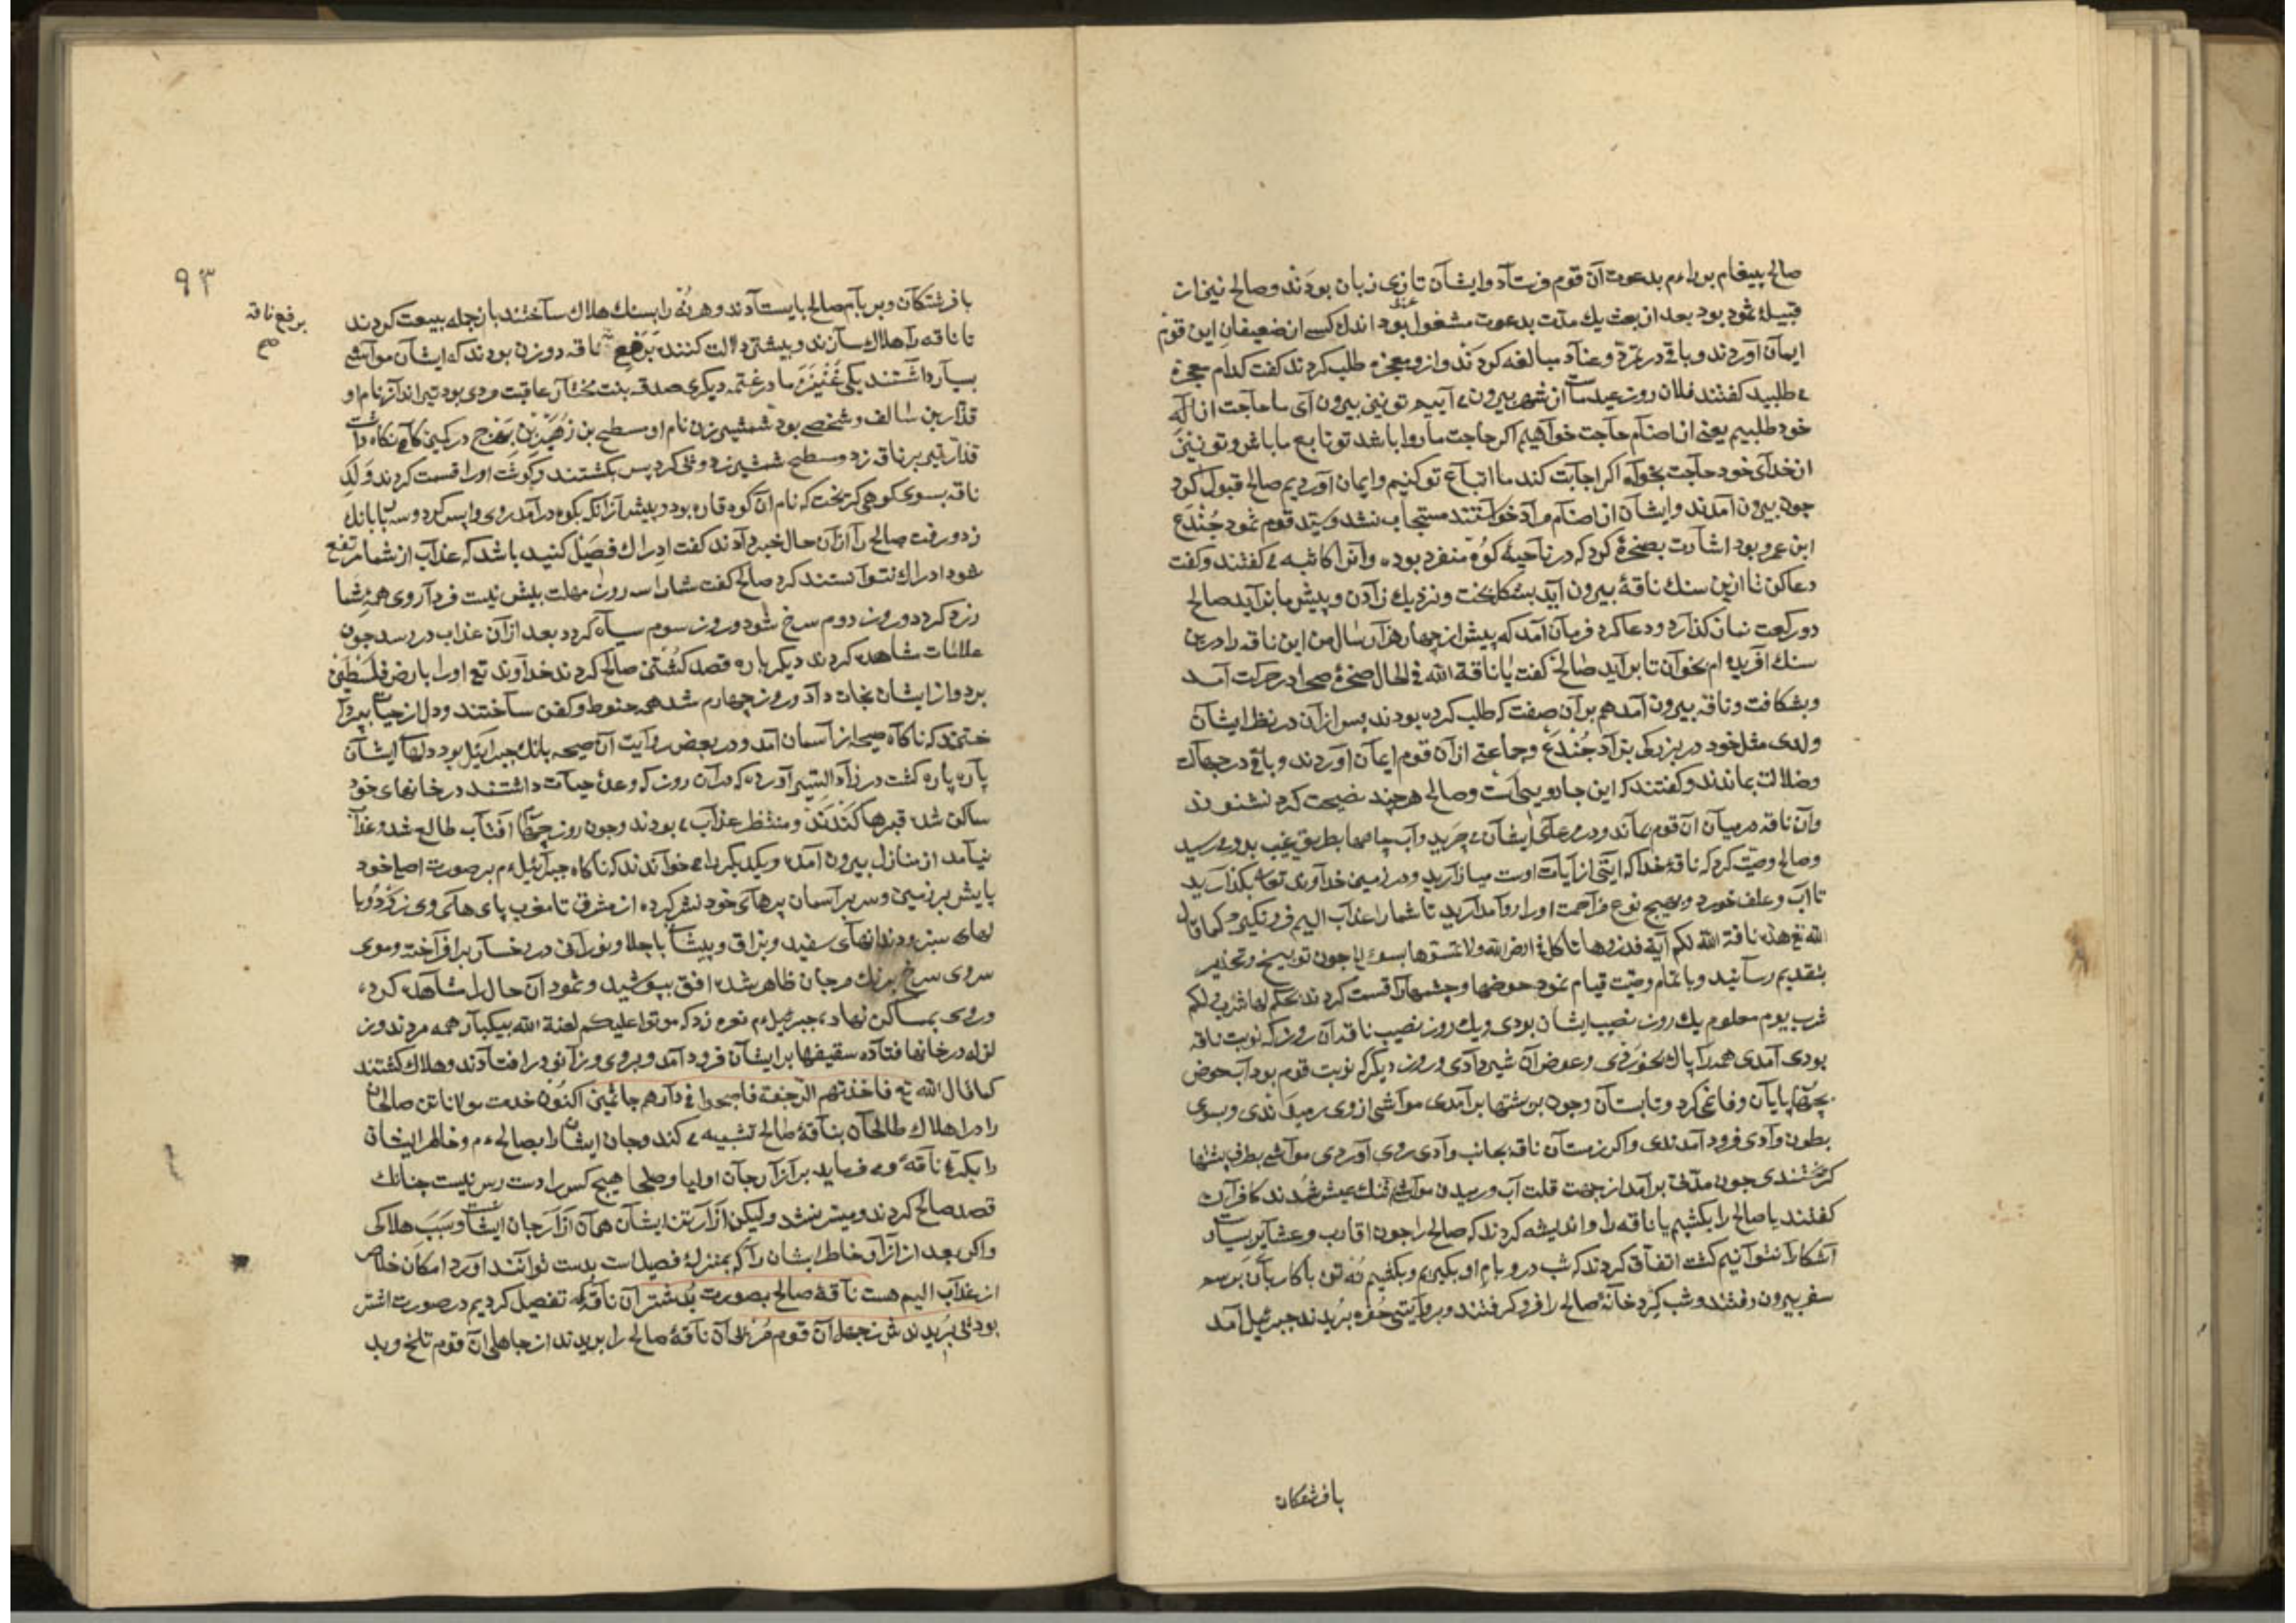 صالح پیغام بر را ءم بدعوت آن قوم فرستآد و ایشآن تازی زبان بودند و صالح نیز از
قبیلۀ ثمود بود بعد از بعث یك مدّت بدعوت مشغول بود اندك کسے از ضعیفان این قوم
ایمآن آوردند و باقے در تمرّد و عنآد مبالغه کردند و ازو معجزه طلب کردند کفت کدام معجزه
ے طلبید کفتند فلان روز عید ماست از شهر بیرون ے آییم تو نیز بیرون آی ما حآجت از آلهۀ
خود طلبیم یعنی از اصنآم حآجت خوآهیم اکر حاجت ما روا باشد تو تابع ما باش و تو نیز
از خدآی خود حآجت بخوآه اکر اجآبت کند ما اتبآع تو کنیم و ایمان آوردیم صالح قبول کرد
چون بیرون آمدند و ایشآن از اصنآم مرآد خوآستند مستجاب نشد و سیّد قوم ثمود جُنْدَع
ابن عمرو بود اشآرت بصخرۀ کرد که در نآحیۀ کوُه منفرد بوده و آنرا کاثبه ے کفتند و کفت
دعا کن تا ازین سنك ناقۀ بیرون آید بشکل بخت و نزدیك زآدن و پیش ما بزآید صالح
دو رکعت نماز کذارد و دعا کرد فرمآن آمد که پیش از چهار هزآر سال من این ناقه را درین
سنك آفریده ام بخوآن تا برآید صالح کفت یا ناقة الله فی الحال صخرۀ صمآ در حرکت آمد
و بشکافت و ناقه بیرون آمد هم برآن صفت که طلب کرده بودند پس ازآن در نظر ایشآن
ولدی مثل خود در بزرکی بزآد جُنْدَع و جمآعتی ازآن قوم ایمآن آوردند و باقے در جهآلت
و ضلالت بماندند و کفتند که این جادوییی است و صالح هرچند نصیحت کرد نشنودند
و آن ناقه در میآن آن قوم بمآند و در مرعآی ایشآن ے چرید و آب چاهها بطریق غیب بدو ے رسید
و صالح وصیّت کرد که ناقۀ خدا که آیتی از آیآت اوست میازآرید و در زمین خدآوند تعالے بکذآرید
تا آب و علف خورد و بهیچ نوع مزآحمت او را روا مدآرید تا شما را عذآب الیم فرو نکیرد کما قال
الله تع هذه ناقة الله لکم آیة فذروها تاکل فی ارض الله ولا تمسّوها بسوء الخ چون توبیخ و تحذیر
بتقدیم رسآنید و باتمآم وصیّت قیآم نمود حوضها و چشمهارا قسمت کردند بحکم لها شرب و لکم
شرب یوم معلوم یك روز نصیب ایشان بودی و یك روز نصیب ناقه آن روز که نوبت ناقه
بودی آمدی همه را پاك بخوردی و عوض آن شیر دآدی و روز دیکر که نوبت قوم بود آب حوض
بطون وآدی فرود آمدندی و اکر زمستآن ناقه بجانب وآدی روی آوردی موآشی بطرف پشتها
کریختندی چون مدّتی برآمد از جهت قلت آب و رمیدن موآشی تنك عیش شدند کافرآن
کفتند یا صالح را بکشیم یا ناقه را و اندیشه کردند که صالح را چون اقارب و عشآیر بسیآرست
آشکارآ نتوآنیم کشت اتفآق کردند که شب در و بام او بکیریم و بکشیم نُه تن با کاربآن بر سم
سفر بیرون رفتند و شب کِرد خآنۀ صالح را فرو کرفتند و بروآیتی حفره بریدند جبرئیل آمد
بافرشتکان
۹۳
با فرشتکآن و بر بآم صالح بایستآدند و هر نُه را بسنك هلاك سآختند باز جمله بیعت کردند
بر فع ناقه
صح
تا ناقه رآ هلاك سآزند و بیشتر دلالت کنند بر فع ناقه دو زن بودند که ایشآن موآشی
بسیآر دآشتند یکی عُنَیْزَه مادر غنمه دیکری صدقه بنت مختآر عاقبت مردی بود تیر اندآز نام او
قذآر بن سالف و شخصے بود شمشیر زن نام او مسطح بن زُهَیْر بن در کمین کآه نکاه دآشت
قذآر تیر بر ناقه زد و مسطح شمشیر زد و پی کرد پس بکشتند و کوشت اورا قسمت کردند و وَلَدِ
ناقه بسوی کوهی کریخت که نام آن کوه قاره بود و پیش ازآنکه بکوه درآمد روی واپس کرد و سه بانك
زد و رفت صالح رآ ازآن حال خبر دآدند کفت ادراك فصیل کنید باشد که عذآب از شما مرتفع
شود ادراك نتوآنستند کرد صالح کفت شمارا سه روز مهلت بیش نیست فردآ روی همۀ شما
زرد کردد و روز دوم سرخ شود و روز سوم سیآه کردد بعد ازآن عذاب در رسد چون
علامات مشاهده کردند دیکر باره قصد کُشتن صالح کردند خدآوند تع اورا بارض فلسطین
برد و از ایشان نجات دآد و روز چهارم شد همه حنوط و کفن سآختند و دل از حیآت بپردآ
ختند که ناکآه صیحۀ از آسمان آمد و در بعض روآیت آن صیحه بانك جبرآئیل بود دلهآ ایشآن
پآره پآره کشت در زآد المسیر آورده که درآن روز که وعدۀ حیآت داشتند در خانهای خود
ساکن شده قبرها کَنْدَند و منتظر عذآب ے بودند و چون روز چهآرم آفتآب طالع شد و عذآب
نیآمد از منازل بیرون آمده و یکدیکر را ے خوآندند که ناکاه جبرآئیل ءم بر صورت اصلی خود
پایش بر زمین و سر بر آسمان پرهآی خود نشر کرده از مشرق تا مغرب پای هآی وی زرد و با
لهای سبز و دندانهآی سفید و برّاق و پیشآنی باجلا و نورآنی و رخسآر برافرآخته و موی
سروی سرخ برنك مرجان ظاهر شده افق بپوشید و ثمود آن حال را مشاهده کرده
و روی بمساکن نهاده جبرئیل ءم نعره زد که موتوا علیکم لعنة الله بیکبآر همه مردند و ز
لزله در خانها فتآده سقیفها بر ایشآن فرود آمد و بروی و زآنو در افتآدند و هلاك کشتند
کما قال الله تع فاخذتهم الرّجفة فاصبحوا فی دآرهم جاثمین اکنون خدمت مولانا تن صالحآن
را در اهلاك طالحآن بنآقۀ صالح تشبیه ے کند و جان ایشآن را بصالح ءم و خاطر ایشان
را بکرّۀ نآقه و ے فرماید بر آزآر جآن اولیا و صلحا هیچ کس را دست رس نیست چنانك
قصد صالح کردند و میسّر نشد و لیکن آزآر تن ایشان همآن آزآر جان ایشآنست و سبب هلاکی
و اکر بعد از آزآر خاطر ایشان رآ که بمنزلۀ فصیل است بدست توآنند آورد امکآن خلاص
از عذآب الیم هست نآقۀ صالح بصورت بُد شتر آن ناقه که تفصیل کردیم در صورت اشتر
بود پی بُریدندش ز جهل آن قوم مُر آن نآقۀ صالح را بریدند از جاهلی آن قوم تلخ و بد